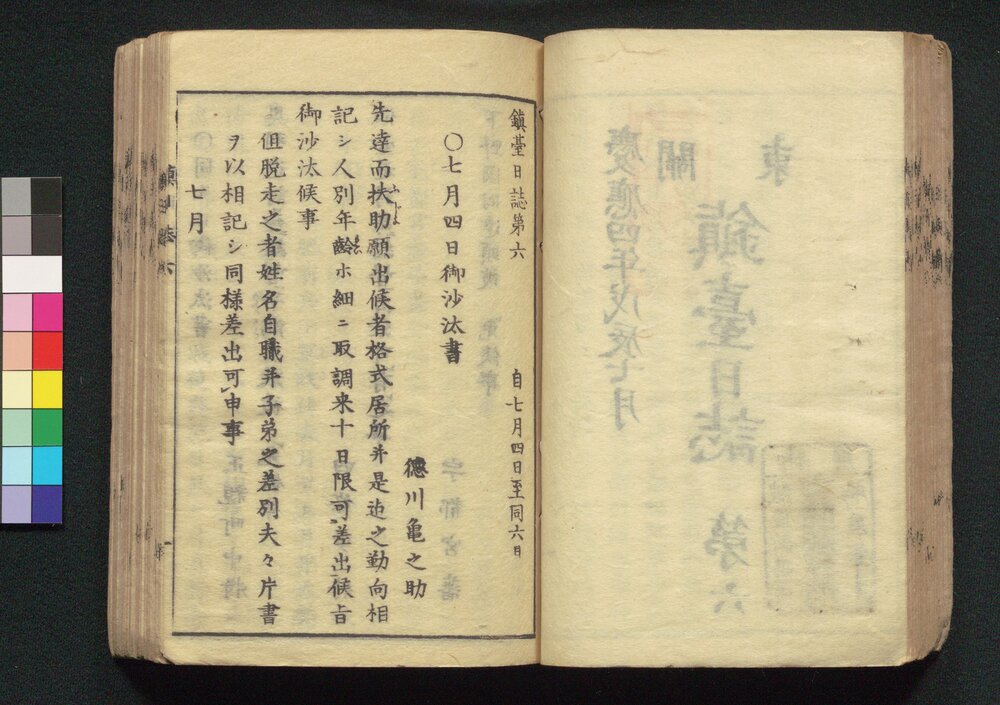 鎮臺日誌第六
自七月四日至同六日
〇七月四日御沙汰書
德川亀之助
先達而扶助願出候者格式居所并是迄之勤向相
記シ人別年齢ホ細ニ取調来十日限可差出候旨
御沙汰候事
但脱走之者姓名自職并子弟之差別夫々片書
ヲ以相記シ同様差出可申事
七月
東
關
鎮臺日誌 第六
慶應四年戊辰七月